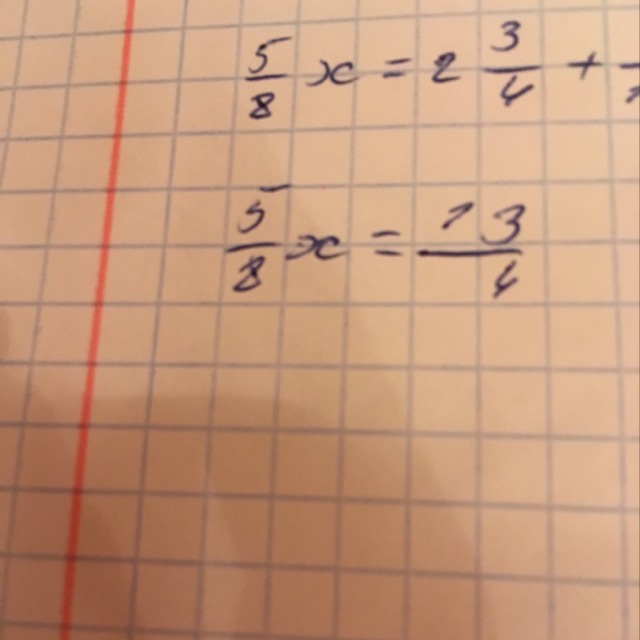 5/8 x = 2 3/4 +
5/8 x = 13/4